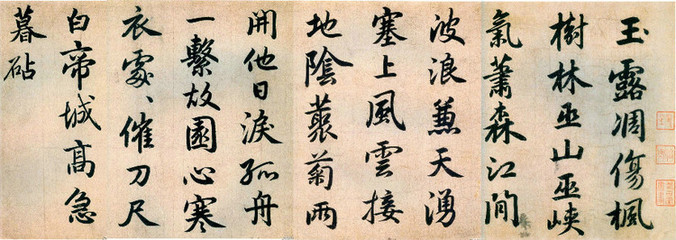 玉露凋傷楓
樹林巫山巫峽
氣蕭森江間
波浪兼天湧
塞上風雲接
地陰藂菊兩
開他日淚孤舟
一繫故園心寒
衣處々催刀尺
白帝城高急
暮砧